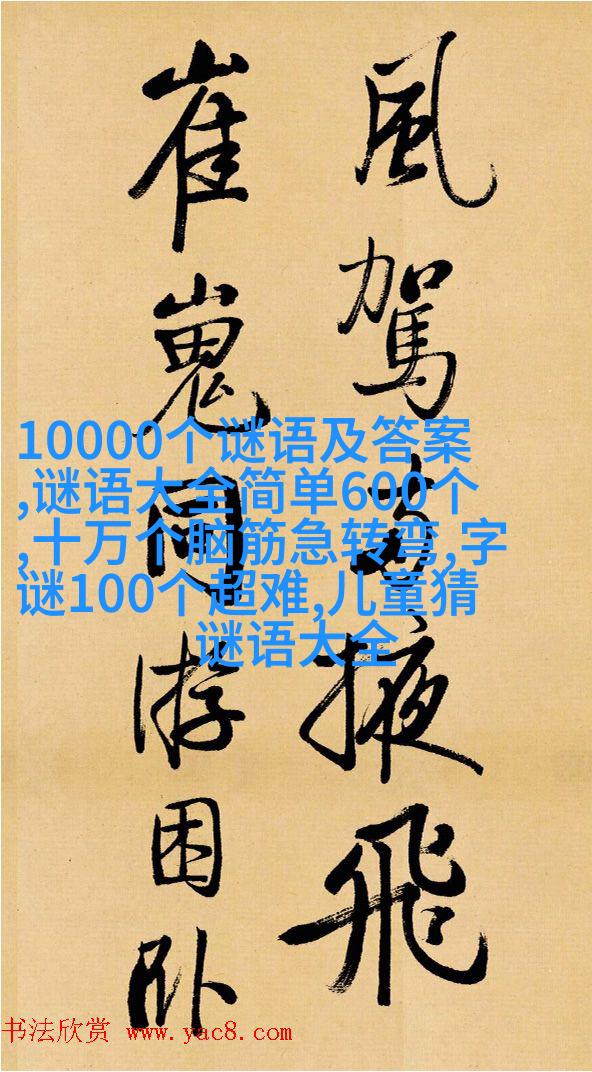 風駕掖飛
崔嵬游困卧
10000个谜语及答案
,谜语大全简单600个
,十万个脑筋急转弯,字
谜100个超难,儿童猜
谜语大全
书法欣赏 www.yac8.com